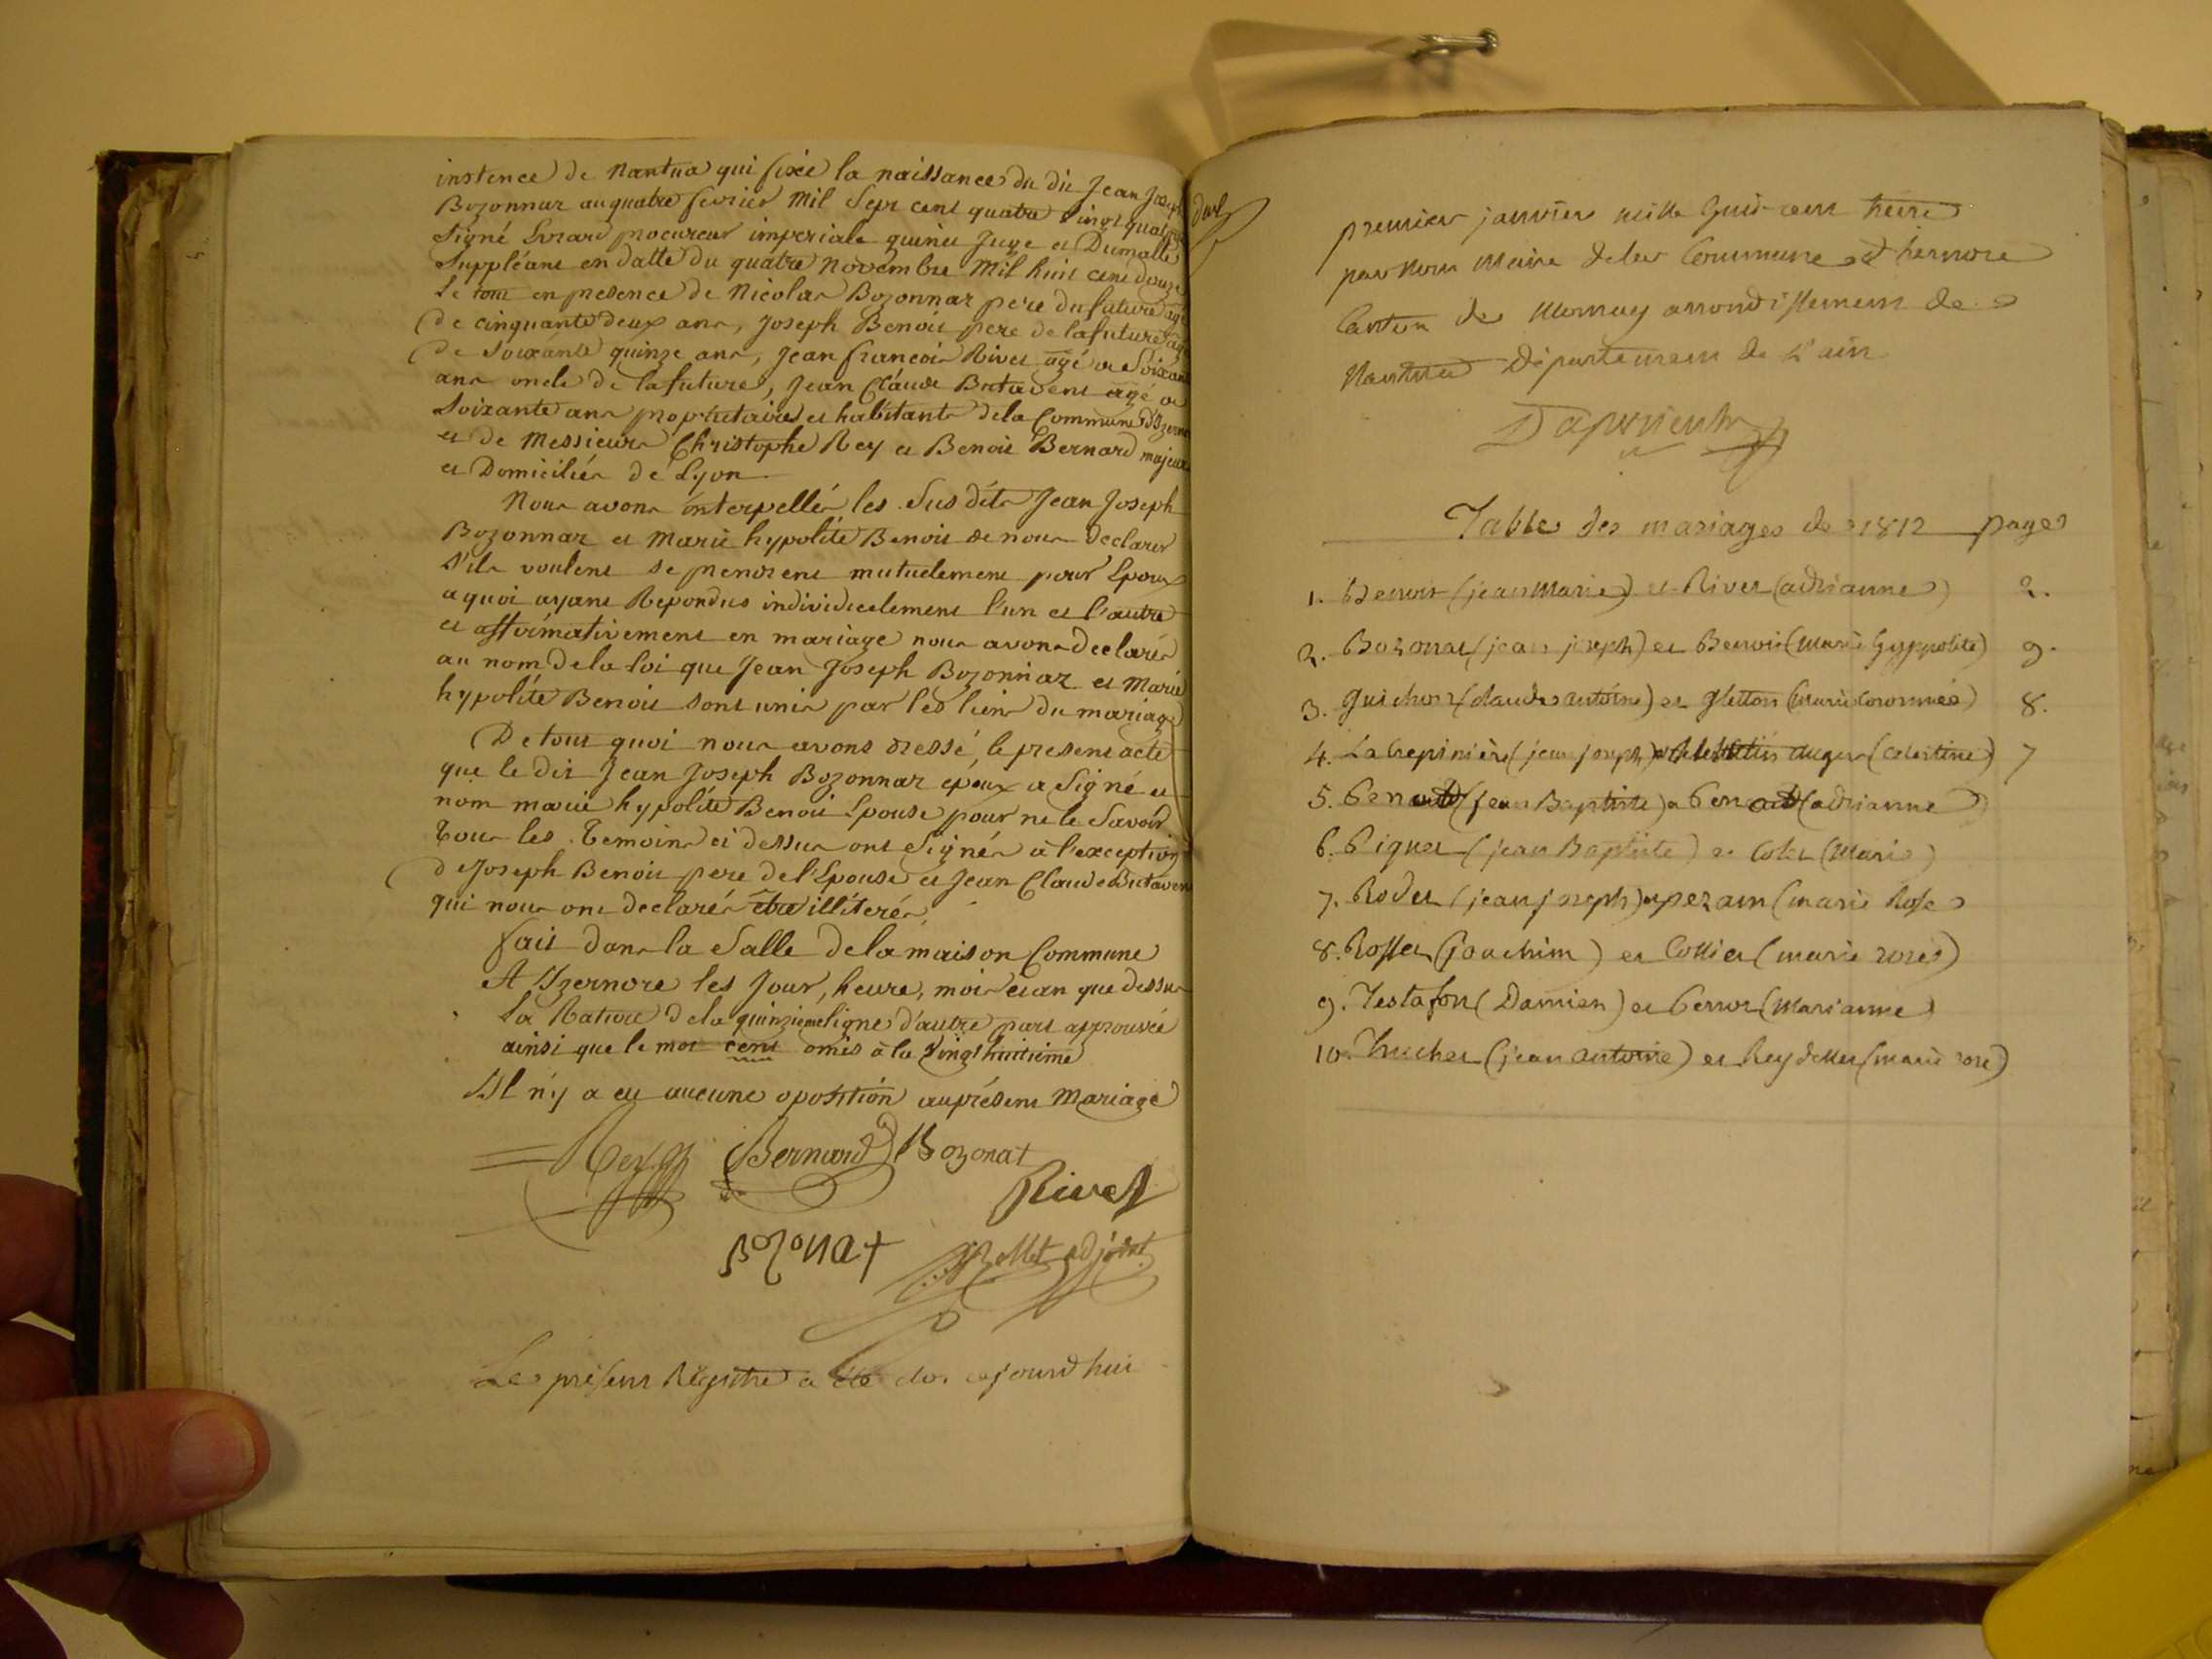 instence de Nantua qui fixée la naissance du dit Jean Joseph
Bozonnaz au quatre fevrier Mil Sept cent quatre vingt quatorze
Signé procureur imperiale guinet Juge et Dumalle
Suppléant en datte du quatre Novembre Mil huit cent douze
Le tout en presence de Nicolas Bozonnaz pere du future agé
de cinquante deux ans, Joseph Benoit pere de la future agé
de soixante quinze ans, Jean francois Rivet agé de Soixante
ans oncle de la future, Jean Claude Butavent agé de
Soixante ans propriétaires et habitants de la Commune d'Izernore
et de Messieurs Christophe Rey et Benoit Bernard majeurs
et Domiciliés de Lyon
Nous avons interpellés les Sus dits Jean Joseph
Bozonnaz et Marie hypolite Benoit de nous declarer
s'ils veulent se prendrent mutuelement pour Epoux
a quoi ayant Repondus individuelement l'un et l'autre
et affirmativement en mariage nous avons declarés
au nom de la loi que Jean Joseph Bozonnaz et Marie
hypolite Benoit sont unis par les liens du mariage
De tout quoi nous avons dressé, le present acte
que le dit Jean Joseph Bozonnaz epoux a Signé et
nom marie hypolite Benoit Epouse pour ne le Savoir
tous les temoins ci dessus ont Signés à l'exception
de Joseph Benoit pere de l'Epouse et Jean Claude Butavent
qui nous ont declarés être illiterés
fait dans la Salle de la maison Commune
A Izernore les Jour, heure, mois et an que dessus
La Rature de la quinzieme ligne d'autre part approuvée
ainsi que le mot cent omis à la vingt huitieme
Il n'y a eu aucune oposition au présent Mariage
Rey Bernard Bozonat
Rivet
Bozonat adjoint
Le present Régistre a été clos cejourdhui
premier janvier mille huit cent treize
par nous Maire de la Commune d'hernore
Canton de Mornay arrondissement de
Nantua Département de L'ain
Table des mariages de 1812 pages
1. Benoit (jean Marie) et Rivet (adrianne) 2.
2. Bozonat (jean joseph) et Benoit (Marie hyppolite) 9.
3. guichon (claude antoine) et gletton (Marie Coronnée) 8.
4. Lacrepinière (jean joseph) auger (Celestine) 7
5. (jean Baptiste) et (adrianne)
6. Piquet (jean Baptiste) et Colet (Marie)
7. Rodet (jean joseph) et perain (marie Rose)
8. Rosset (joachim) et Collet (marie rose)
9. Testafon (Damien) et (Marianne)
10. Truchet (jean antoine) et Reydellet (marie rose)